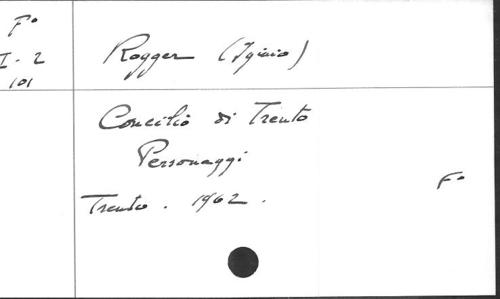 F°
I-2
101
Rogger (Iginio)
Concilio di Trento
Personaggi
Trento. 1962.
F°